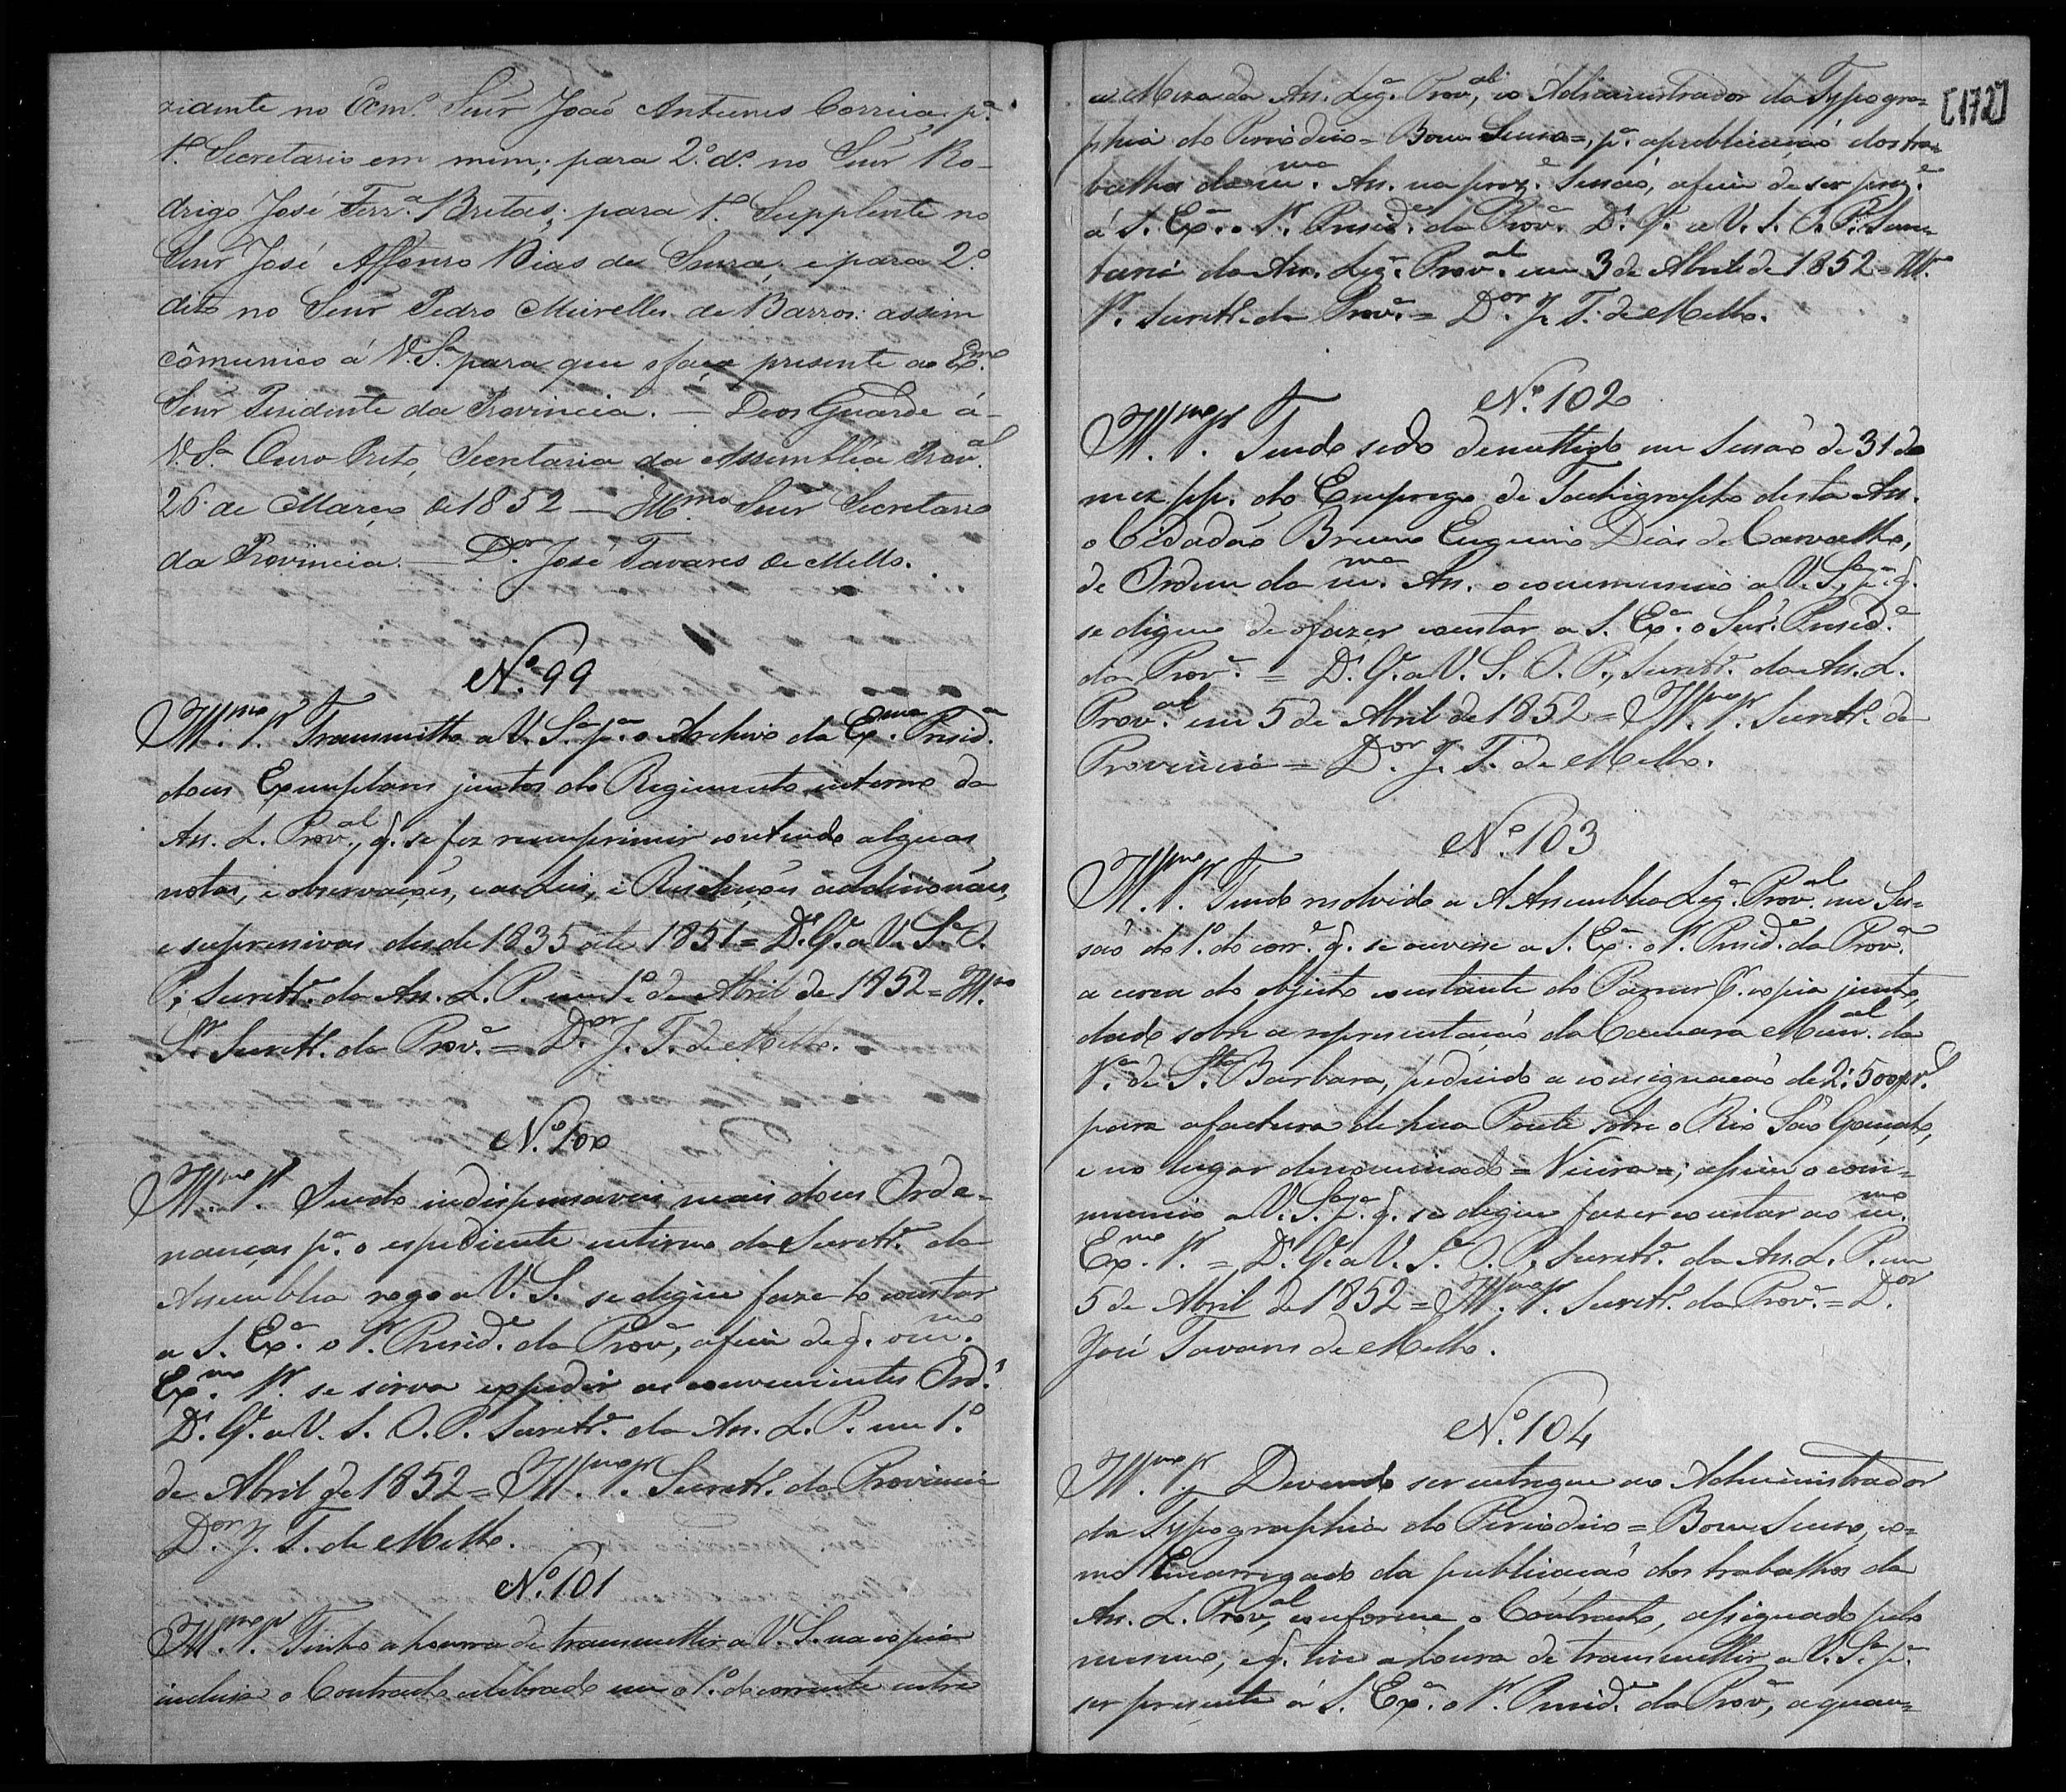 zidente no Exm.º Senr João Antunes Correia, p.ª
1.º Secretario em mim; para 2.º d.º no Senr Ro-
drigo José Ferr.ª Bretas; para 1.º Supplente no
Senr José Affonso Dias de Souza, e para 2.º
dito no Senr Pedro Meirelles de Barros: assim
cômunico á V. S.ª para que o faça presente ao Ex.mo
Senr Presidente da Provincia. — Deos Guarde á
V. S.ª Ouro Preto, Secretaria da Assemblea Prov.al
26 de Março de 1852 — Ill.mo Senr Secretario
da Provincia. — D.or José Tavares de Mello.
N.º 99
Ill.mo Sr. Transmitto a V. S.ª p.ª o Archivo da Ex.ma Presid.ª
dous Exemplares juntos do Regimento interno da
As. L. Prov.al, q. se fez reimprimir contendo alguas
notas, e observações, e as Leis, e Resoluções addicionáes,
e supressivas desde 1835 até 1851 = D.s G.e a V. S.ª O.
P., Secretr.ª da As. L. P. em 1.º de Abril de 1852 = Ill.mo
Sr. Secretr.º da Prov.ª = D.or J. T. de Mello.
N.º 100
Ill.mo Sr. Sendo indispensaveis mais dous Orde-
nanças p.ª o espediente interno da Secretr.ª da
Assemblea rogo a V. S. se digne faze-lo constar
a S. Ex.ª o Sr. Presid.e da Prov.ª, afim de q. o m.mo
Ex.mo Sr. se sirva expedir as convenientes Ord.s
D.s G.e a V. S. O. P. Secretr.ª da As. L. P. em 1.º
de Abril de 1852 = Ill.mo Sr. Secretr.º da Provincia
D.or J. T. de Mello.
N.º 101
Ill.mo Sr. Tenho a honra de transmettir a V. S. na copia
inclusa o Contracto celebrado em o 1.º do corrente entre
[172]
a Meza da As. Leg.ª Prov.al, e o Administrador da Typogra=
phia do Periodico = Bom Senso =, p.ª a publicação dos tra=
balhos da m.ma As. na prez.e Sessão, afim de ser prez.e
á S. Ex.ª o Sr. Presid.e da Prov.ª D.s G.e a V. S. O. P. Secre-
taria da As. Leg.ª Prov.al em 3 de Abril de 1852 = Ill.mo
Sr. Secretr.º da Prov.ª = D.or J. T. de Mello.
N.º 102
Ill.mo Sr. Tendo sido demettido em Sessão de 31 do
mez pp. do Emprego de Tachigrapho desta As.
o Cidadão Bruno Eugenio Dias de Carvalho,
de Ordem da m.ma As. o communico a V. S.ª, p.ª q.
se digne de o fazer constar a S. Ex.ª o Senr. Presid.e
da Prov.ª = D.s G.e a V. S. O. P., Secretr.ª da As. L.
Prov.al em 5 de Abril de 1852 = Ill.mo Sr. Secretr.º da
Provincia = D.or J. T. de Mello.
N.º 103
Ill.mo Sr. Tendo resolvido a Assemblea Leg.ª Prov.al em Ses=
são do 1.º do corr.e q. se ouvisse a S. Ex.ª o Sr. Presid.e da Prov.ª
a cerca do objecto constante do Parecer p.r copia junto,
dado sobre a representação da Camara Mun.al da
V.ª de S.ta Barbara, pedindo a consignação de 2:500$ r.s
para a factura de hua Ponte sobre o Rio São Gonçalo,
e no lugar denominado = Vieira =; assim o com=
munico a V. S.ª p.ª q. se digne fazer constar ao m.mo
Ex.mo Sr. = D.s G.e a V. S.ª O. P. Secretr.ª da As. L. P. em
5 de Abril de 1852 = Ill.mo Sr. Secretr.º da Prov.ª = D.or
José Tavares de Mello.
N.º 104
Ill.mo Sr. Devendo ser entregue ao Administrador
da Typographia do Periodico = Bom Senso, co=
mo Encarregado da publicação dos trabalhos da
As. L. Prov.al, conforme o Contracto, assignado pelo
mesmo, e q. tive a honra de transmettir a V. S.ª p.ª
ser presente á S. Ex.ª o Sr. Presid.e da Prov.ª, a quan=